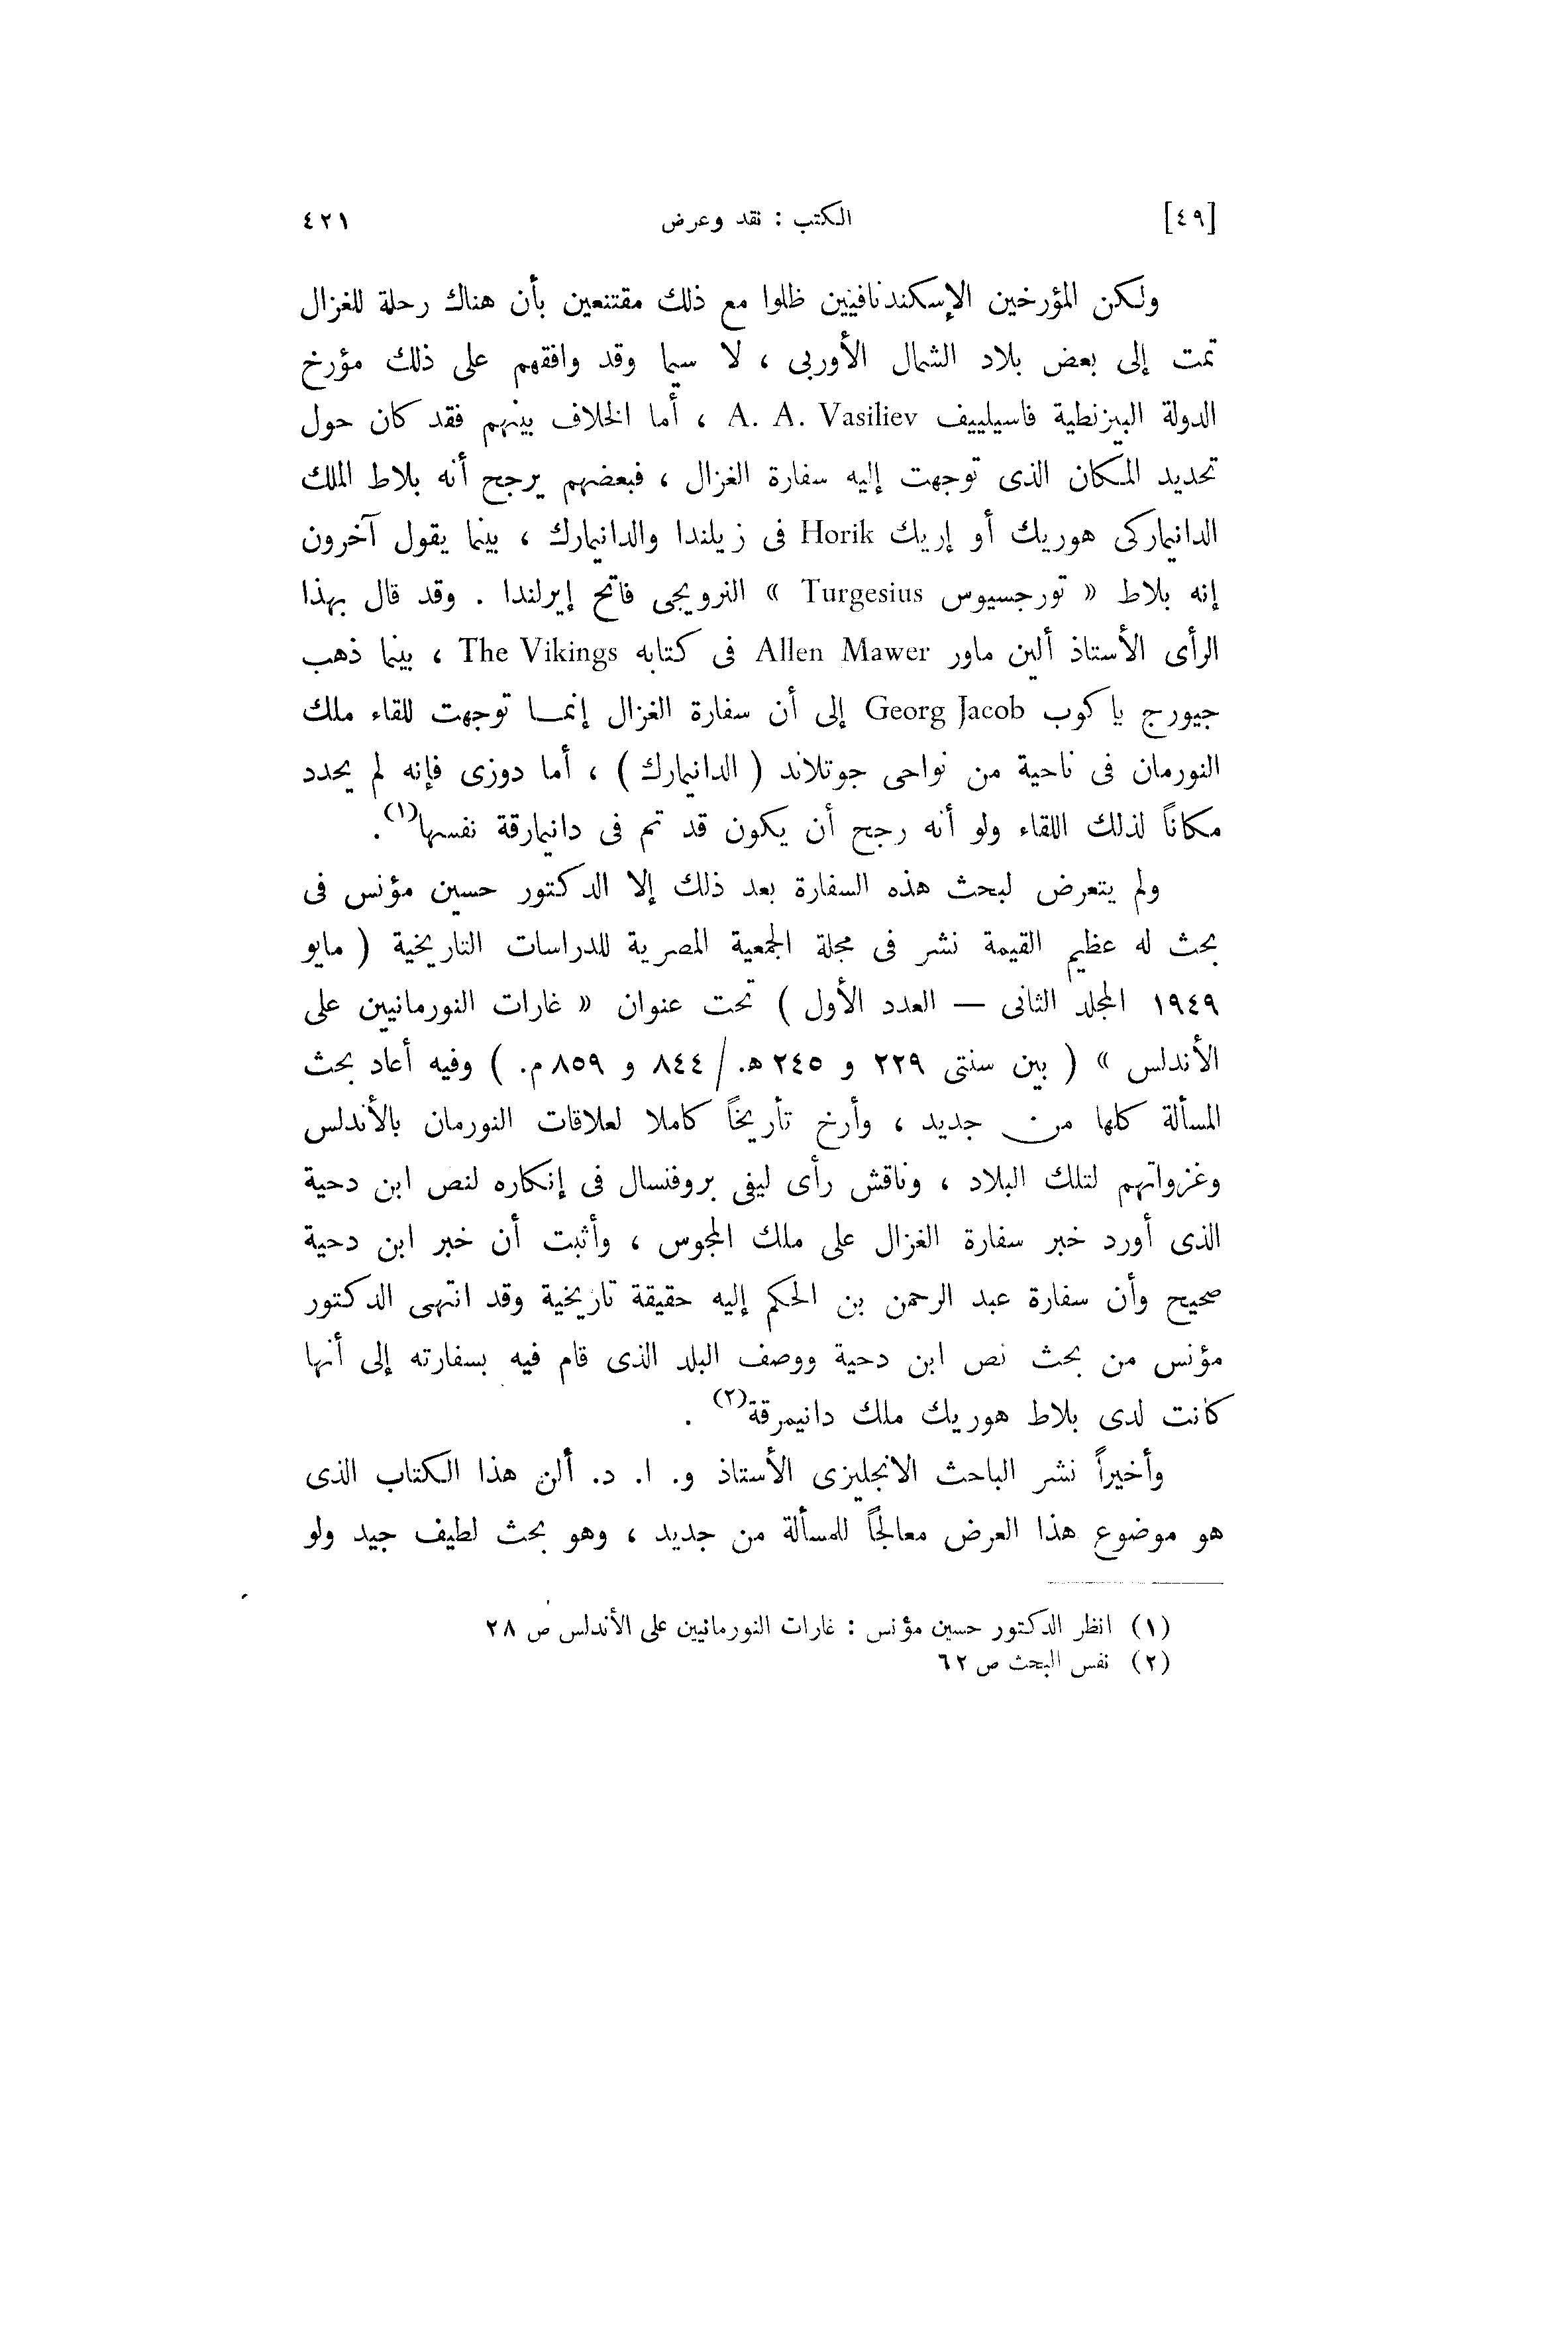 [٤٩] الكتب : نقد وعرض ٤٢١
ولكن المؤرخين الإسكندنافيين ظلوا مع ذلك مقتنعين بأن هناك رحلة للغزال
تمت إلى بعض بلاد الشمال الأوربى ، لا سيما وقد وافقهم على ذلك مؤرخ
الدولة البيزنطية فاسيلييف A. A. Vasiliev ، أما الخلاف بينهم فقد كان حول
تحديد المكان الذى توجهت إليه سفارة الغزال ، فبعضهم يرجح أنه بلاط الملك
الدانيماركى هوريك أو إريك Horik فى زيلندا والدانيمارك ، بينما يقول آخرون
إنه بلاط « تورجسيوس Turgesius » النرويجى فاتح إيرلندا . وقد قال بهذا
الرأى الأستاذ ألين ماور Allen Mawer فى كتابه The Vikings ، بينما ذهب
جيورج ياكوب Georg Jacob إلى أن سفارة الغزال إنما توجهت للقاء ملك
النورمان فى ناحية من نواحى جوتلاند ( الدانيمارك ) ، أما دوزى فإنه لم يحدد
مكاناً لذلك اللقاء ولو أنه رجح أن يكون قد تم فى دانيمارقة نفسها(١).
ولم يتعرض لبحث هذه السفارة بعد ذلك إلا الدكتور حسين مؤنس فى
بحث له عظيم القيمة نشر فى مجلة الجمعية المصرية للدراسات التاريخية ( مايو
١٩٤٩ المجلد الثانى — العدد الأول ) تحت عنوان « غارات النورمانيين على
الأندلس » ( بين سنتى ٢٢٩ و ٢٤٥ ھ. / ٨٤٤ و ٨٥٩ م. ) وفيه أعاد بحث
المسألة كلها من جديد ، وأرخ تأريخاً كاملا لعلاقات النورمان بالأندلس
وغزواتهم لتلك البلاد ، وناقش رأى ليفى بروفنسال فى إنكاره لنص ابن دحية
الذى أورد خبر سفارة الغزال على ملك المجوس ، وأثبت أن خبر ابن دحية
صحيح وأن سفارة عبد الرحمن بن الحكم إليه حقيقة تاريخية وقد انتهى الدكتور
مؤنس من بحث نص ابن دحية ووصف البلد الذى قام فيه بسفارته إلى أنها
كانت لدى بلاط هوريك ملك دانيمرقة(٢) .
وأخيراً نشر الباحث الانجليزى الأستاذ و. ا. د. ألن هذا الكتاب الذى
هو موضوع هذا العرض معالجاً للمسألة من جديد ، وهو بحث لطيف جيد ولو
(١) انظر الدكتور حسين مؤنس : غارات النورمانيين على الأندلس ص ٢٨
(٢) نفس البحث ص ٦٢